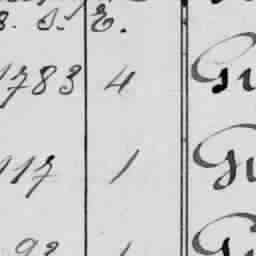 S. E.
1783 4 Gu
117 1 Gu
92 1 Gu